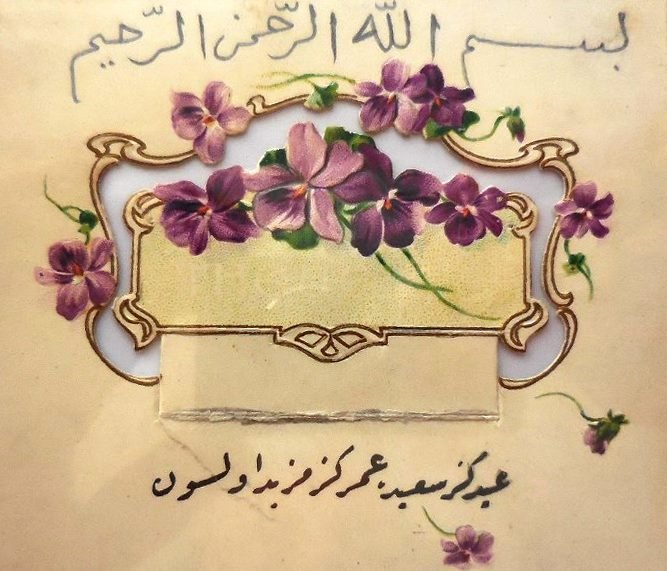 بسم الله الرّحمن الرّحيم
عيدكز سعيد، عمركز مزيد اولسون